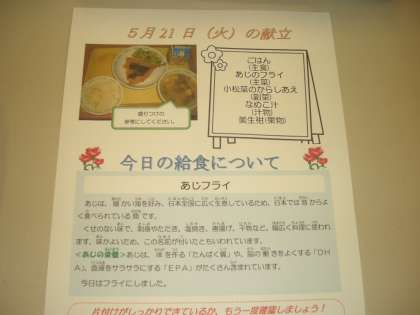 5月21日(火)の献立
ごはん
(主食)
あじのフライ
(主菜)
小松菜のからしあえ
(副菜)
なめこ汁
(汁物)
美生柑(果物)
盛りつけの
参考にしてください。
今日の給食について
あじフライ
あじは、暖かい海を好み、日本全国に広く生息しているため、日本では昔からよ
く食べられている魚です。
くせのない味で、刺身やたたき、塩焼き、唐揚げ、干物など、幅広く料理に使われ
ます。味がよいため、この名前が付いたともいわれています。
<あじの栄養>あじは、体を作る「たんぱく質」や、脳の働きをよくする「DH
A」、血液をサラサラにする「EPA」がたくさん含まれています。
今日はフライにしました。
片付けがしっかりできているか、もう一度確認しましょう!